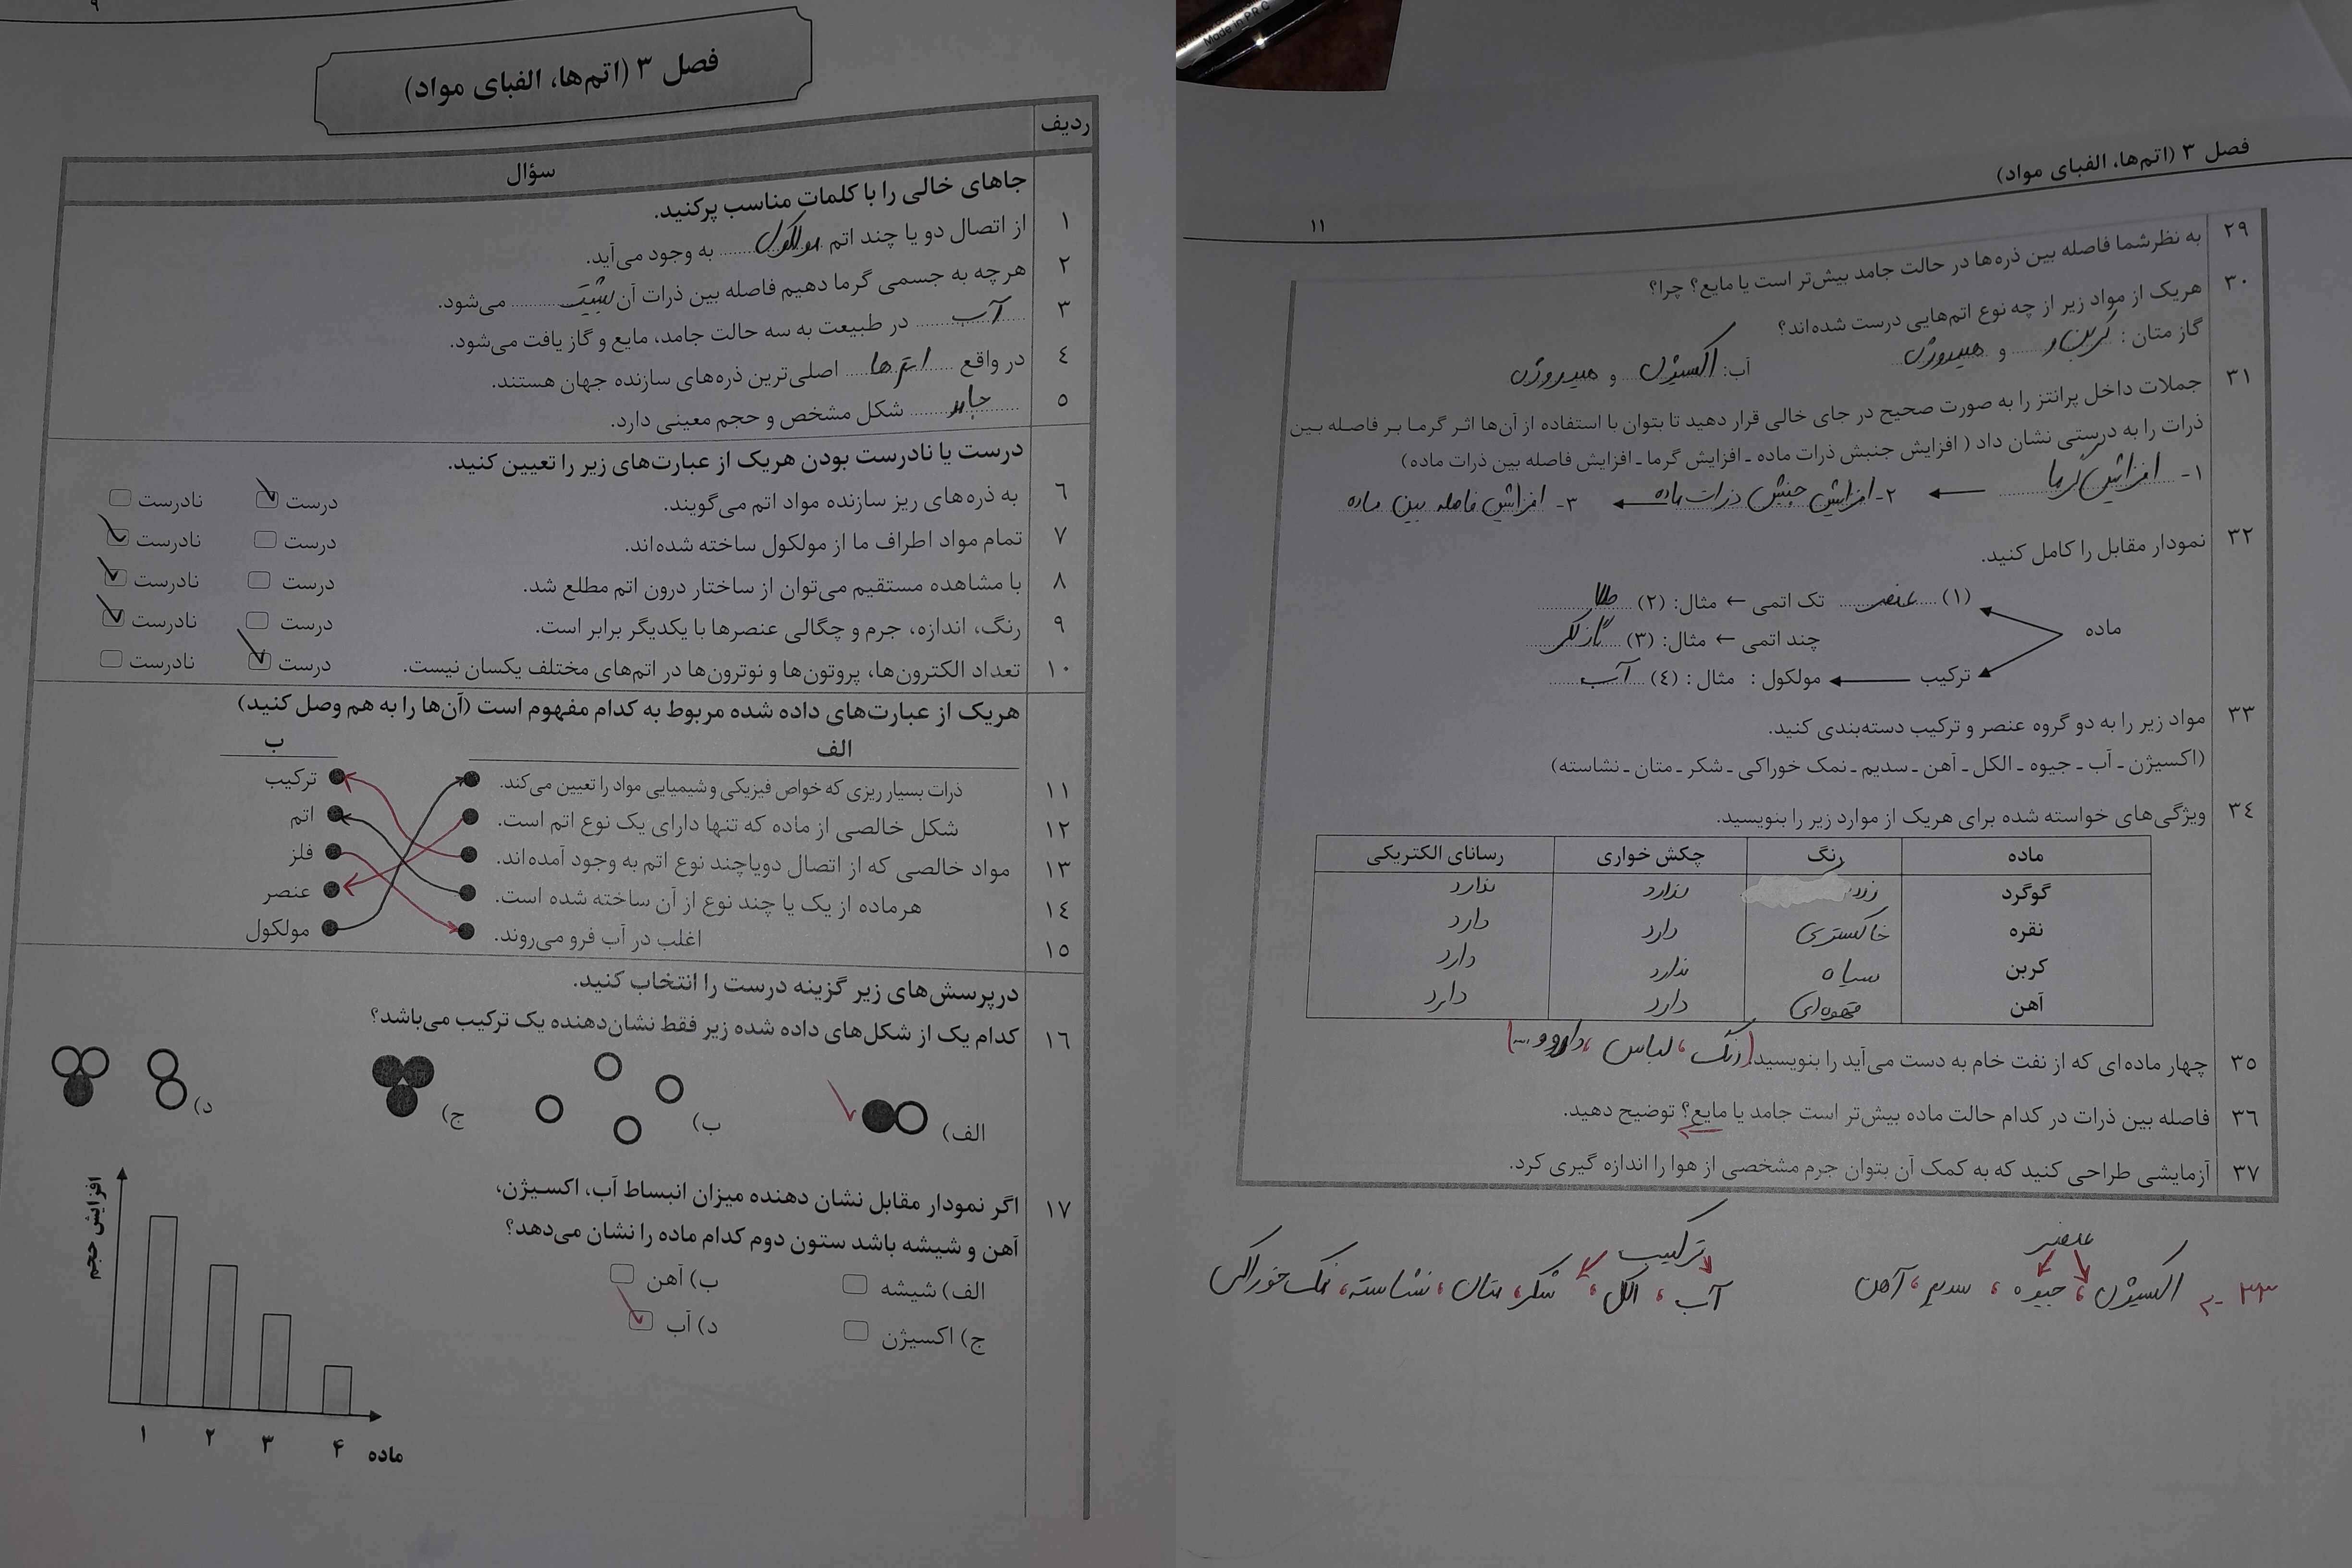 ۹
فصل ۳ (اتم‌ها، الفبای مواد)
ردیف
سؤال
جاهای خالی را با کلمات مناسب پرکنید.
۱ از اتصال دو یا چند اتم مولکول به وجود می‌آید.
۲ هرچه به جسمی گرما دهیم فاصله بین ذرات آن بیشتر می‌شود.
۳ آب در طبیعت به سه حالت جامد، مایع و گاز یافت می‌شود.
۴ در واقع اتم‌ها اصلی‌ترین ذره‌های سازنده جهان هستند.
۵ جامد شکل مشخص و حجم معینی دارد.
درست یا نادرست بودن هریک از عبارت‌های زیر را تعیین کنید.
۶ به ذره‌های ریز سازنده مواد اتم می‌گویند. درست نادرست
۷ تمام مواد اطراف ما از مولکول ساخته شده‌اند. درست نادرست
۸ با مشاهده مستقیم می‌توان از ساختار درون اتم مطلع شد. درست نادرست
۹ رنگ، اندازه، جرم و چگالی عنصرها با یکدیگر برابر است. درست نادرست
۱۰ تعداد الکترون‌ها، پروتون‌ها و نوترون‌ها در اتم‌های مختلف یکسان نیست. درست نادرست
هریک از عبارت‌های داده شده مربوط به کدام مفهوم است (آن‌ها را به هم وصل کنید)
الف ب
۱۱ ذرات بسیار ریزی که خواص فیزیکی و شیمیایی مواد را تعیین می‌کند. ترکیب
۱۲ شکل خالصی از ماده که تنها دارای یک نوع اتم است. اتم
۱۳ مواد خالصی که از اتصال دویاچند نوع اتم به وجود آمده‌اند. فلز
۱۴ هرماده از یک یا چند نوع از آن ساخته شده است. عنصر
۱۵ اغلب در آب فرو می‌روند. مولکول
درپرسش‌های زیر گزینه درست را انتخاب کنید.
۱۶ کدام یک از شکل‌های داده شده زیر فقط نشان‌دهنده یک ترکیب می‌باشد؟
الف) ب) ج) د)
۱۷ اگر نمودار مقابل نشان دهنده میزان انبساط آب، اکسیژن،
آهن و شیشه باشد ستون دوم کدام ماده را نشان می‌دهد؟
الف) شیشه ب) آهن
ج) اکسیژن د) آب
افزایش حجم
۱ ۲ ۳ ۴ ماده
Made in P.R.C
فصل ۳ (اتم‌ها، الفبای مواد)
۱۱
۲۹ به نظرشما فاصله بین ذره‌ها در حالت جامد بیش‌تر است یا مایع؟ چرا؟
۳۰ هریک از مواد زیر از چه نوع اتم‌هایی درست شده‌اند؟
گاز متان : کربن و هیدروژن آب: اکسیژن و هیدروژن
۳۱ جملات داخل پرانتز را به صورت صحیح در جای خالی قرار دهید تا بتوان با استفاده از آن‌ها اثر گرما بر فاصله بین
ذرات را به درستی نشان داد ( افزایش جنبش ذرات ماده ـ افزایش گرما ـ افزایش فاصله بین ذرات ماده)
۱- افزایش گرما ۲- افزایش جنبش ذرات ماده ۳- افزایش فاصله بین ماده
۳۲ نمودار مقابل را کامل کنید.
(۱) عنصر تک اتمی ← مثال: (۲) طلا
ماده
چند اتمی ← مثال: (۳) گاز کلر
ترکیب مولکول : مثال : (۴) آب
۳۳ مواد زیر را به دو گروه عنصر و ترکیب دسته‌بندی کنید.
(اکسیژن ـ آب ـ جیوه ـ الکل ـ آهن ـ سدیم ـ نمک خوراکی ـ شکر ـ متان ـ نشاسته)
۳۴ ویژگی‌های خواسته شده برای هریک از موارد زیر را بنویسید.
ماده رنگ چکش خواری رسانای الکتریکی
گوگرد زرد ندارد ندارد
نقره خاکستری دارد دارد
کربن سیاه ندارد دارد
آهن قهوه‌ای دارد دارد
۳۵ چهار ماده‌ای که از نفت خام به دست می‌آید را بنویسید (رنگ، لباس، دارو و ...)
۳۶ فاصله بین ذرات در کدام حالت ماده بیش‌تر است جامد یا مایع؟ توضیح دهید.
۳۷ آزمایشی طراحی کنید که به کمک آن بتوان جرم مشخصی از هوا را اندازه گیری کرد.
عنصر ترکیب
۳۳- اکسیژن، جیوه، سدیم، آهن آب، الکل، شکر، متان، نشاسته، نمک خوراکی